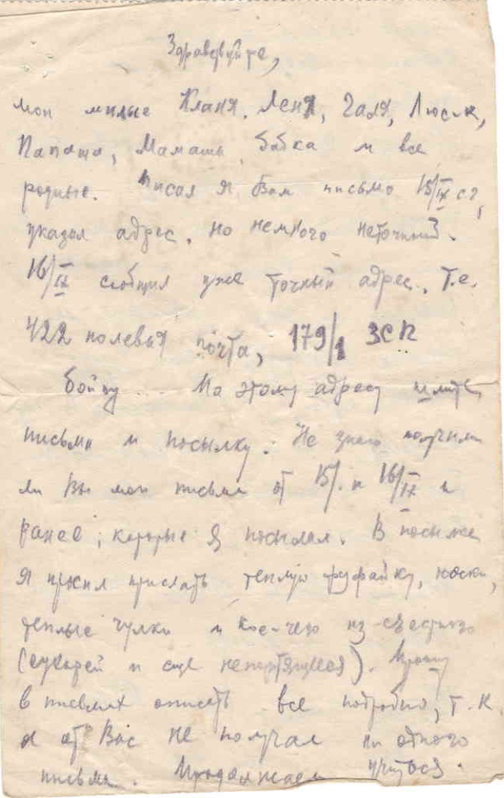 Здравствуйте,
мои милые Кланя, Леня, Галя, Люся,
Папаша, Мамаша, бабка и все
родные. Писал я Вам письмо 15/IX с.г.,
указал адрес, но немного неточный.
16/IX сообщил уже точный адрес, т.е.
422 полевая почта, 179/1 ЗСП
бойцу... По этому адресу шлите
письма и посылку. Не знаю получили
ли Вы мои письма от 15/ и 16/IX и
ранее, которые я посылал. В посылке
я просил прислать теплую фуфайку, носки,
теплые чулки и кое-чего из съестного
(сухарей и еще непортящееся). Прошу
в письмах описать все подробно, т.к.
я от Вас не получал ни одного
письма. Продолжаем учиться.